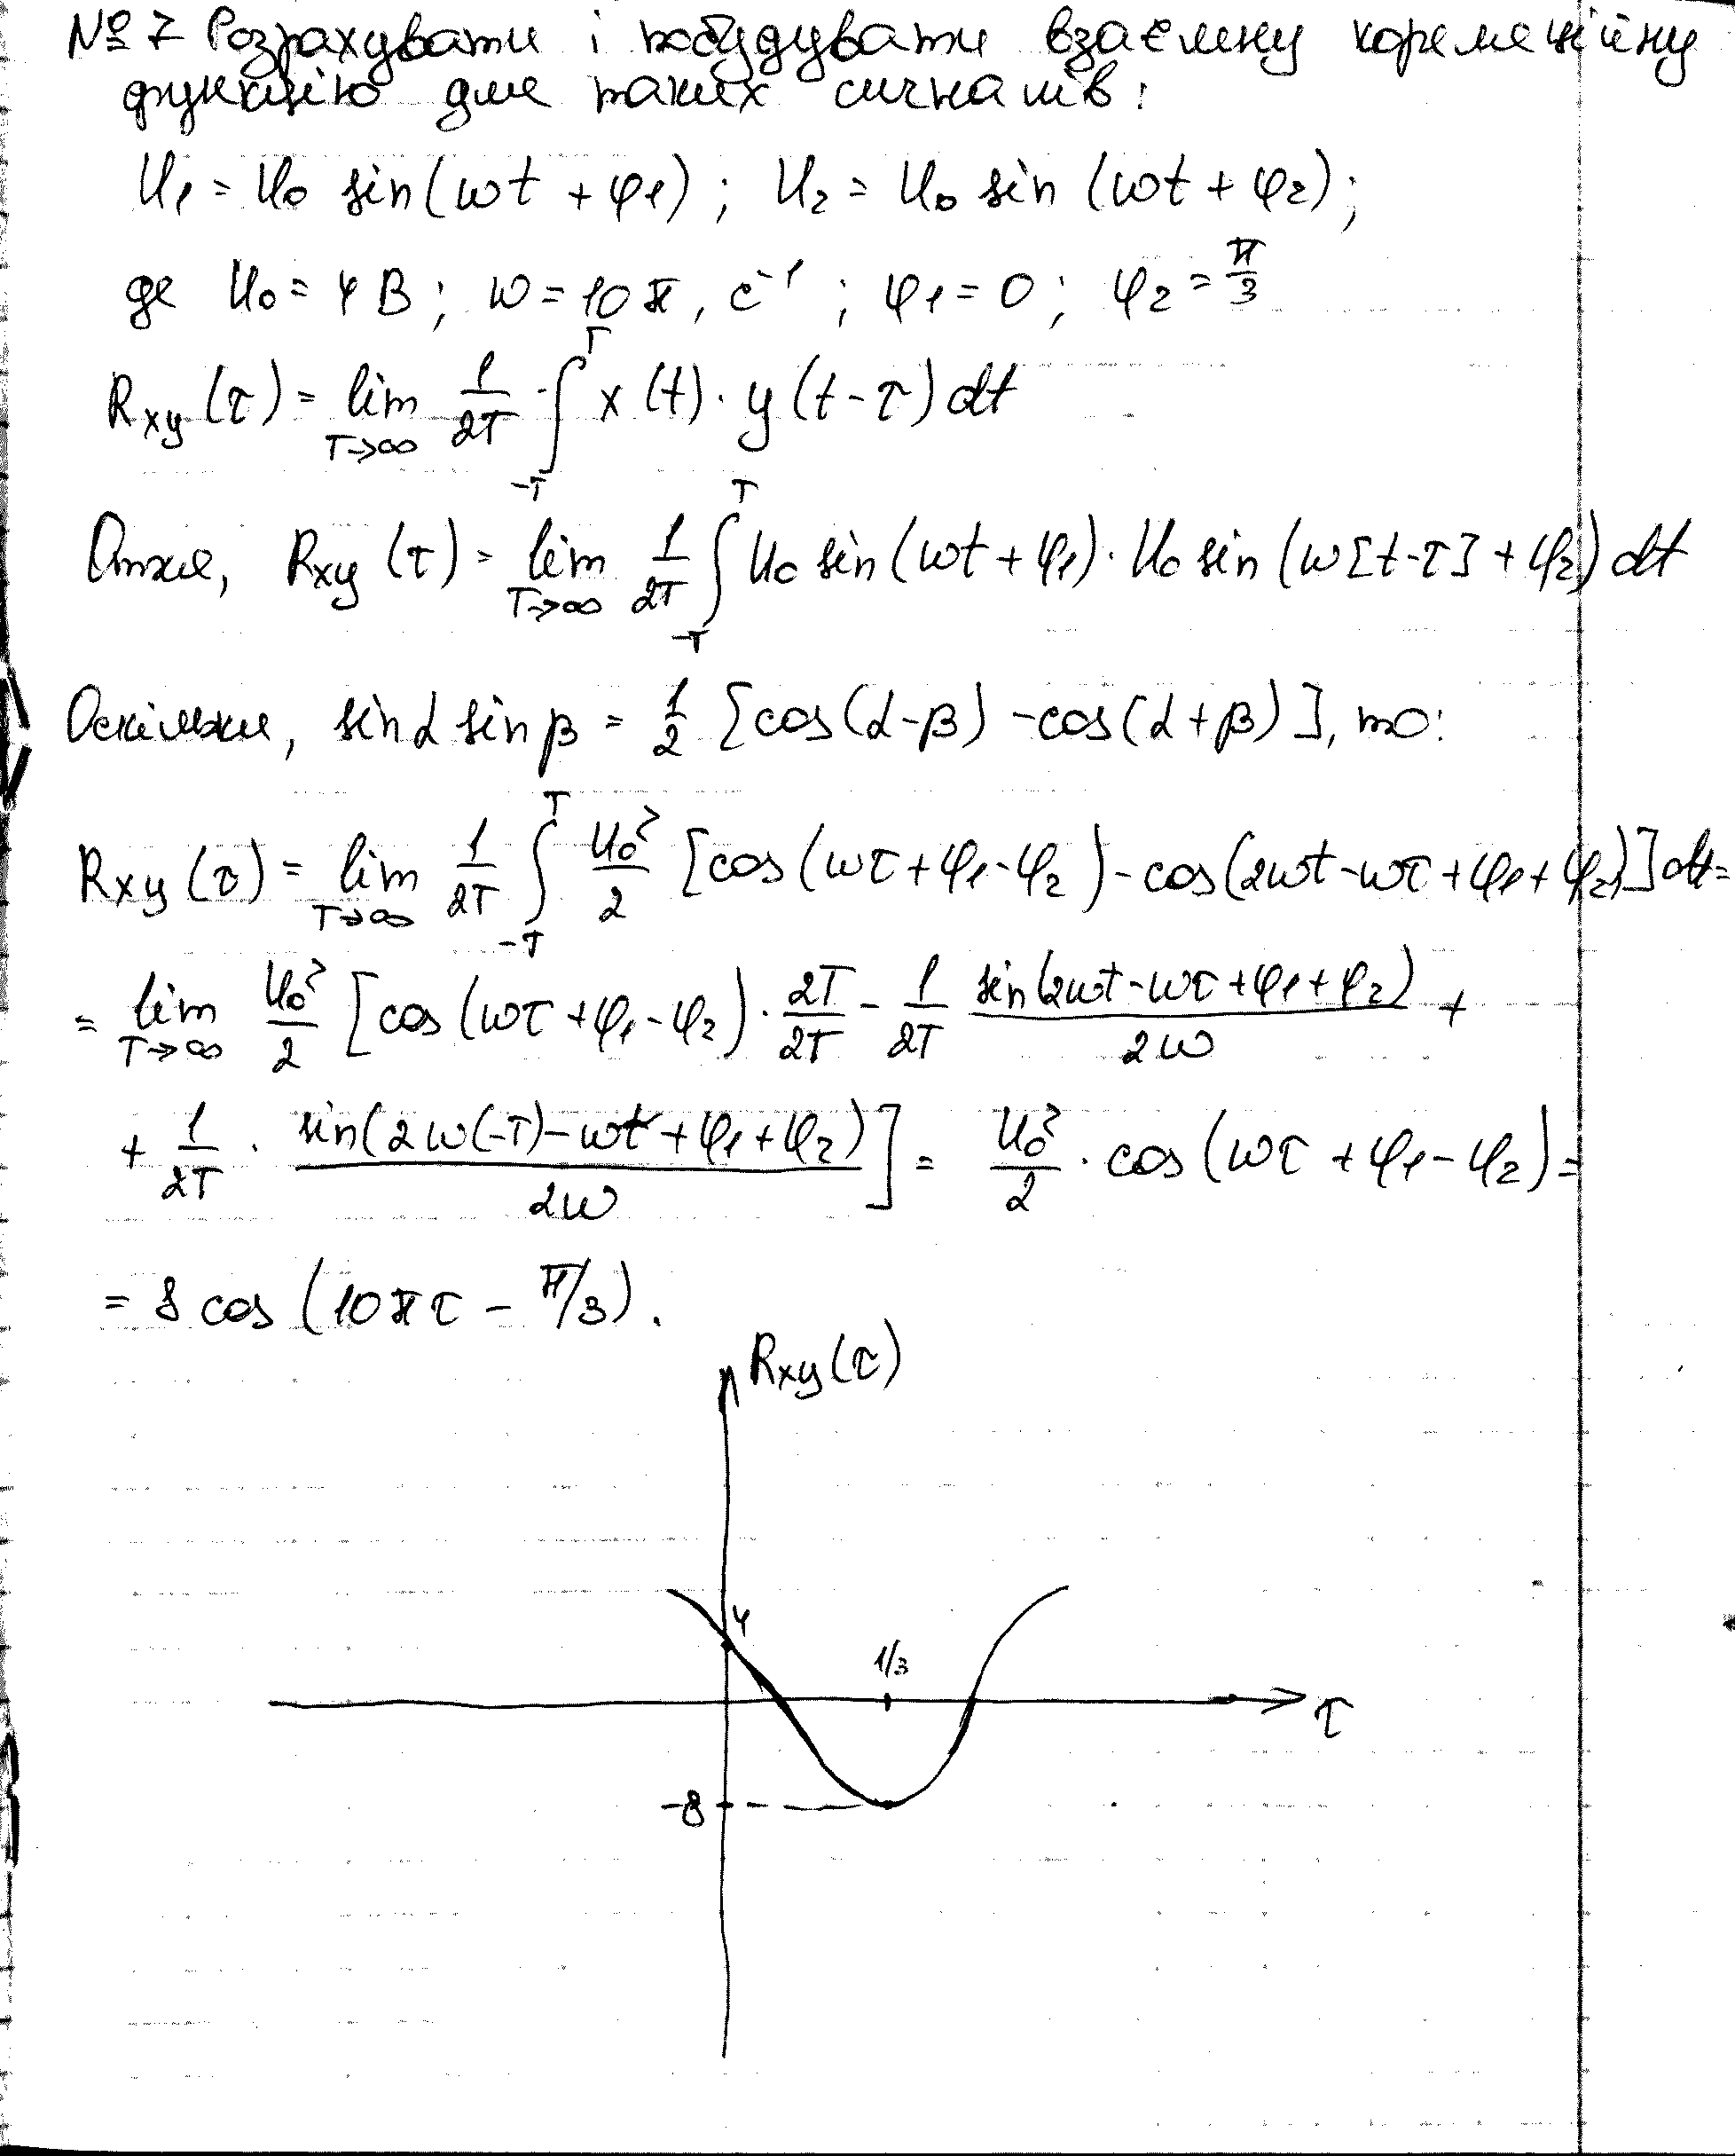 № 7 Розрахувати і побудувати взаємну кореляційну
функцію для таких сигналів:
U₁ = U₀ sin(ωt + φ₁) ; U₂ = U₀ sin (ωt + φ₂);
де U₀ = 4 В; ω = 10π, с⁻¹ ; φ₁ = 0; φ₂ = π/3
Rxy (τ) = lim T→∞ 1/2T · ∫ -T T x (t) · y (t-τ) dt
Отже, Rxy (τ) = lim T→∞ 1/2T ∫ -T T U₀ sin(ωt + φ₁) · U₀ sin (ω[t-τ] + φ₂) dt
Оскільки, sinα sin β = 1/2 [cos(α-β) -cos(α+β)], то:
Rxy (τ) = lim T→∞ 1/2T ∫ -T T U₀²/2 [cos(ωτ+φ₁-φ₂)-cos(2ωt-ωτ+φ₁+φ₂)]dt=
= lim T→∞ U₀²/2 [cos (ωτ +φ₁-φ₂) · 2T/2T - 1/2T sin(2ωt-ωτ+φ₁+φ₂)/2ω +
+ 1/2T · sin(2ω(-T)-ωt+φ₁+φ₂)/2ω ] = U₀²/2 · cos(ωτ +φ₁-φ₂)=
= 8 cos (10πτ - π/3).
Rxy(τ)
4
1/3
τ
-8